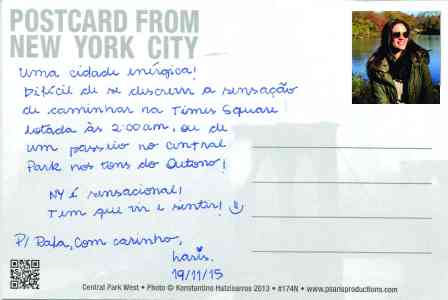 POSTCARD FROM
NEW YORK CITY
Uma cidade enérgica!
Difícil de se descrever a sensação
de caminhar na Times Square
lotada às 2:00am, ou de
um passeio no Central
Park nos tons do Outono!
NY é sensacional!
Tem que vir e sentir! :)
P/ Rafa, Com carinho,
Laris.
19/11/15
Central Park West • Photo © Konstantino Hatzisarros 2013 • #174N • www.psarisproductions.com